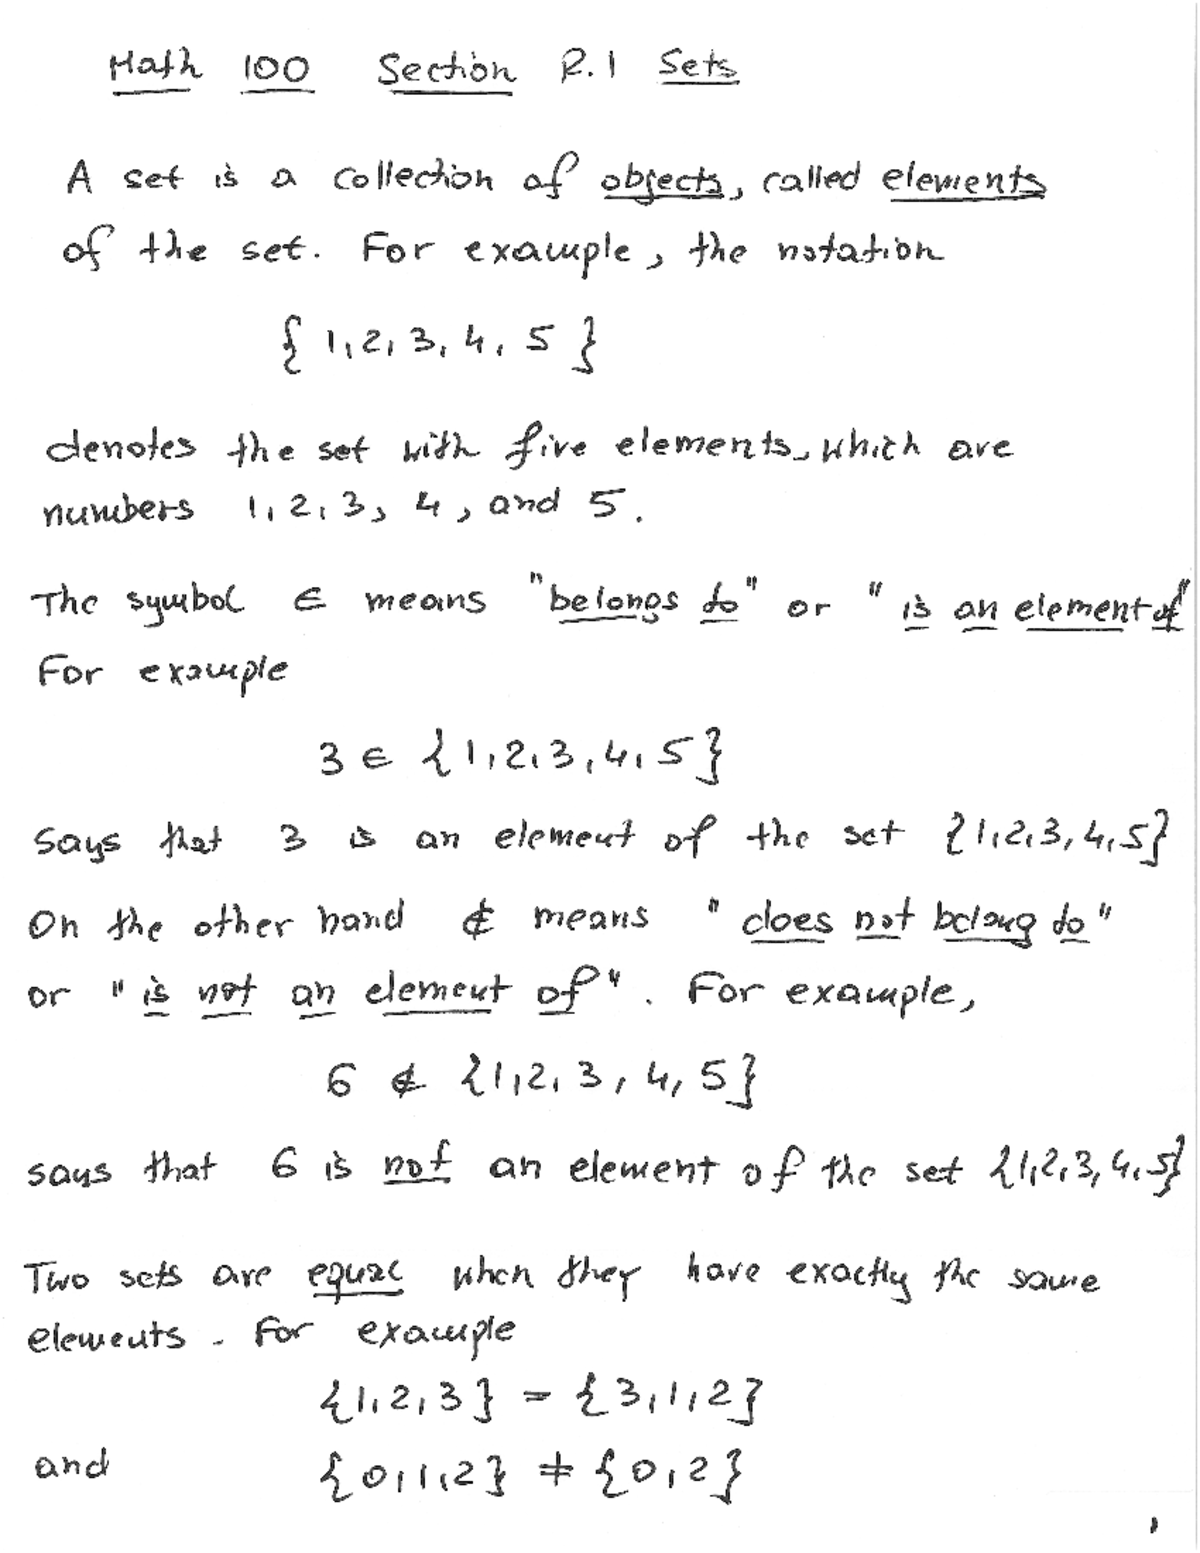 Math 100 Section R.1 Sets
A set is a collection of objects, called elements
of the set. For example, the notation
{ 1, 2, 3, 4, 5 }
denotes the set with five elements, which are
numbers 1, 2, 3, 4, and 5.
The symbol ∈ means "belongs to" or "is an element of"
For example
3 ∈ {1, 2, 3, 4, 5}
says that 3 is an element of the set {1, 2, 3, 4, 5}
On the other hand ∉ means "does not belong to"
or "is not an element of". For example,
6 ∉ {1, 2, 3, 4, 5}
says that 6 is not an element of the set {1, 2, 3, 4, 5}
Two sets are equal when they have exactly the same
elements. For example
{1, 2, 3} = {3, 1, 2}
and {0, 1, 2} ≠ {0, 2}
1